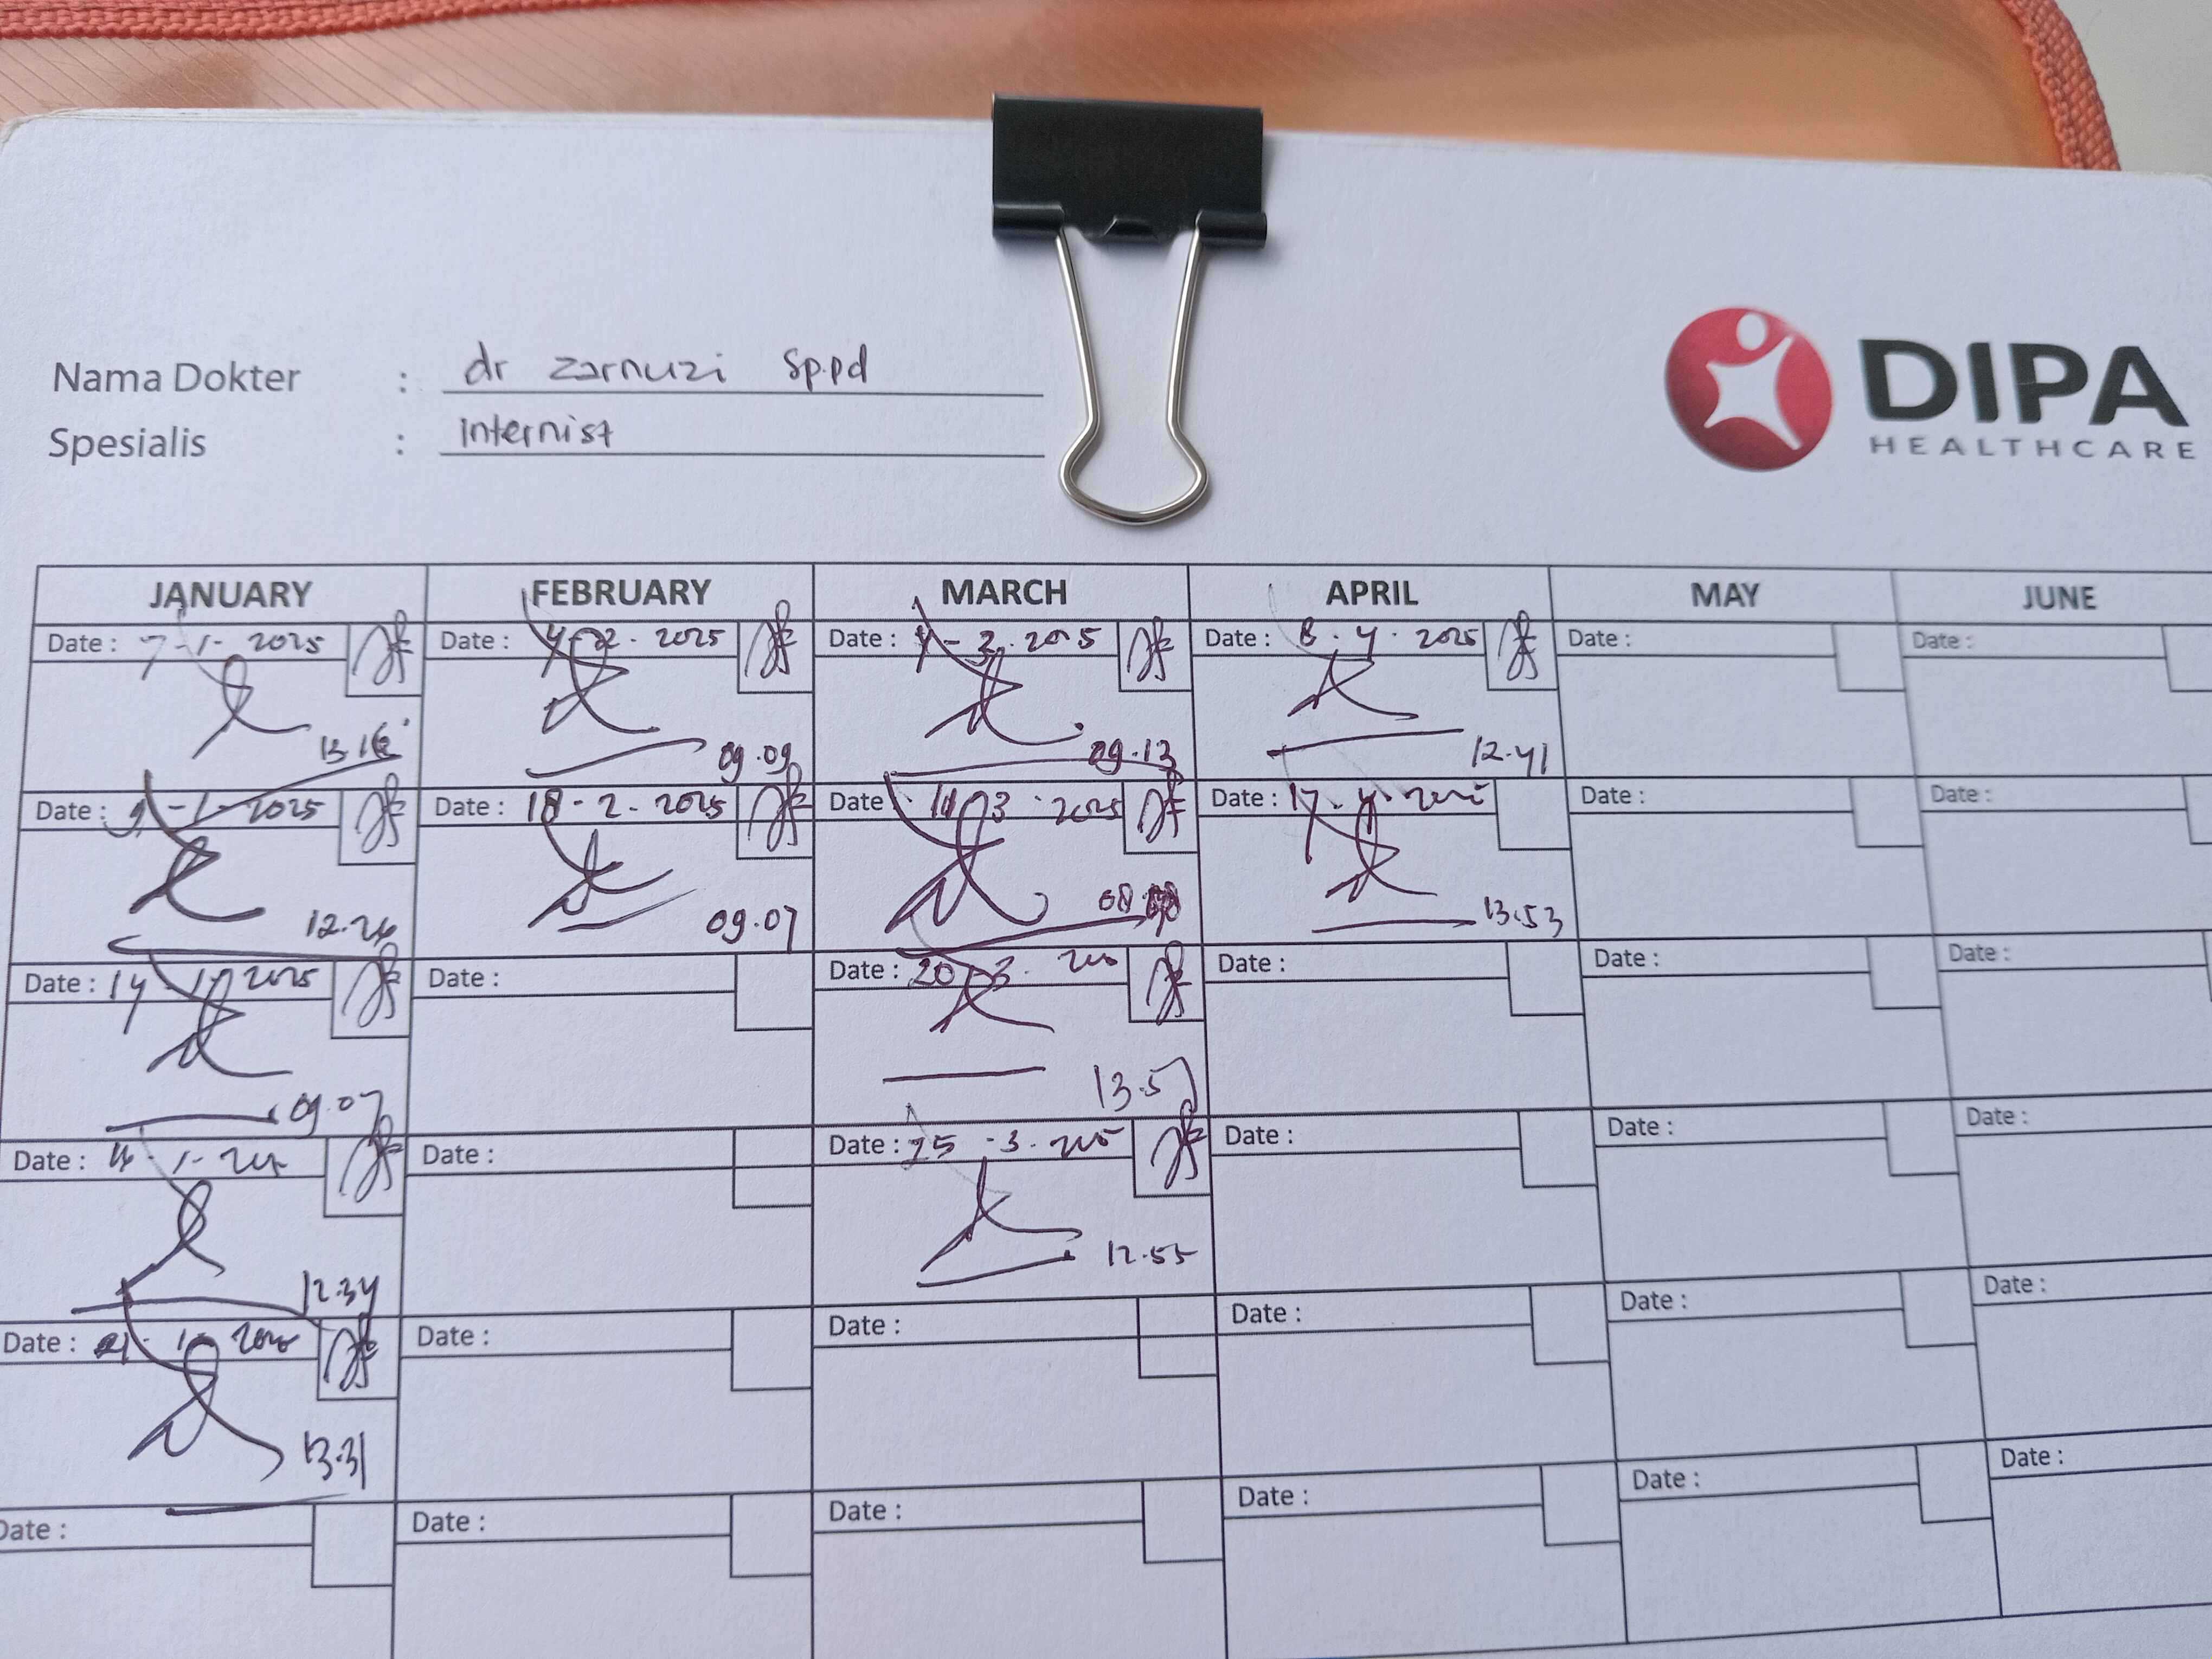 Nama Dokter : dr zarnuzi Sp.pd
Spesialis : internist
DIPA
HEALTHCARE
JANUARY FEBRUARY MARCH APRIL MAY JUNE
Date : 7-1-2025 Date : 4-2-2025 Date : 4-3-2025 Date : 8-4-2025 Date : Date :
09.09 09.13 12.41
Date : 9-1-2025 Date : 18-2-2025 Date : 11-3-2025 Date : 17-4- Date : Date :
12.26 09.07 08. 13.53
Date : 14-1-2025 Date : Date : 20-3- Date : Date : Date :
09.07 13.57
Date : Date : Date : 25-3- Date : Date : Date :
12.34 12.55
Date : 21-1- Date : Date : Date : Date : Date :
13.31
Date : Date : Date : Date : Date : Date :